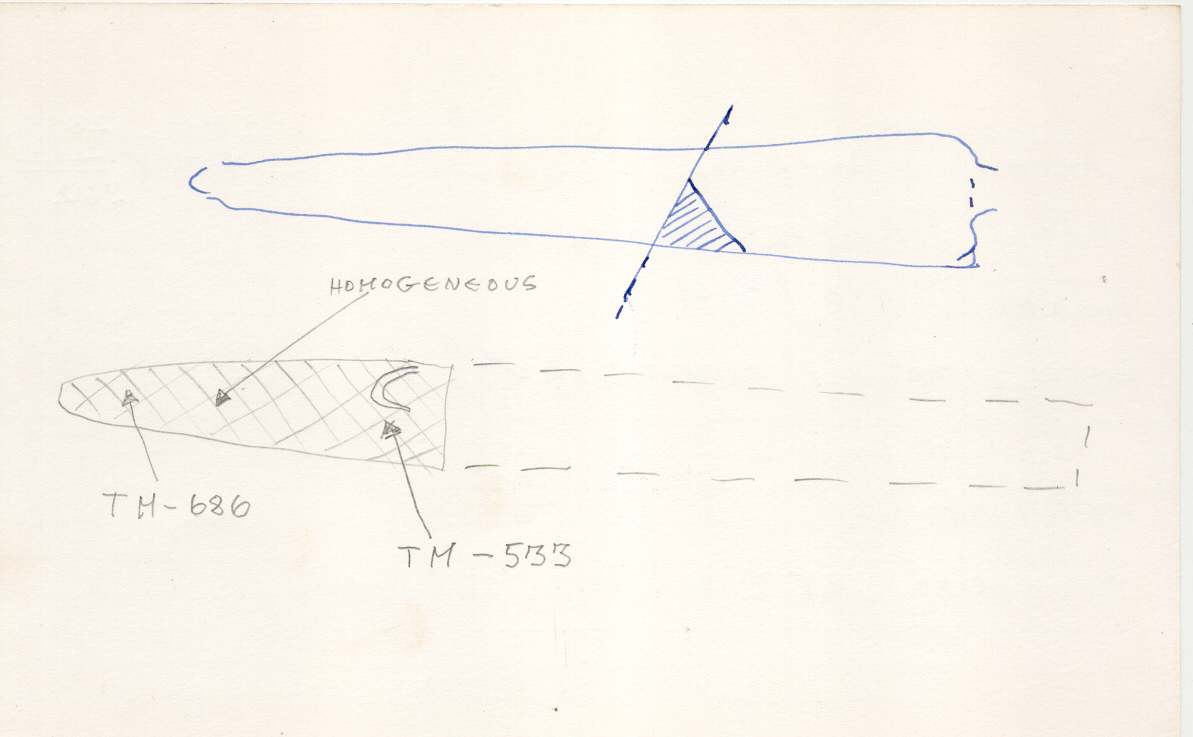 HOMOGENEOUS
TM-686
TM-533